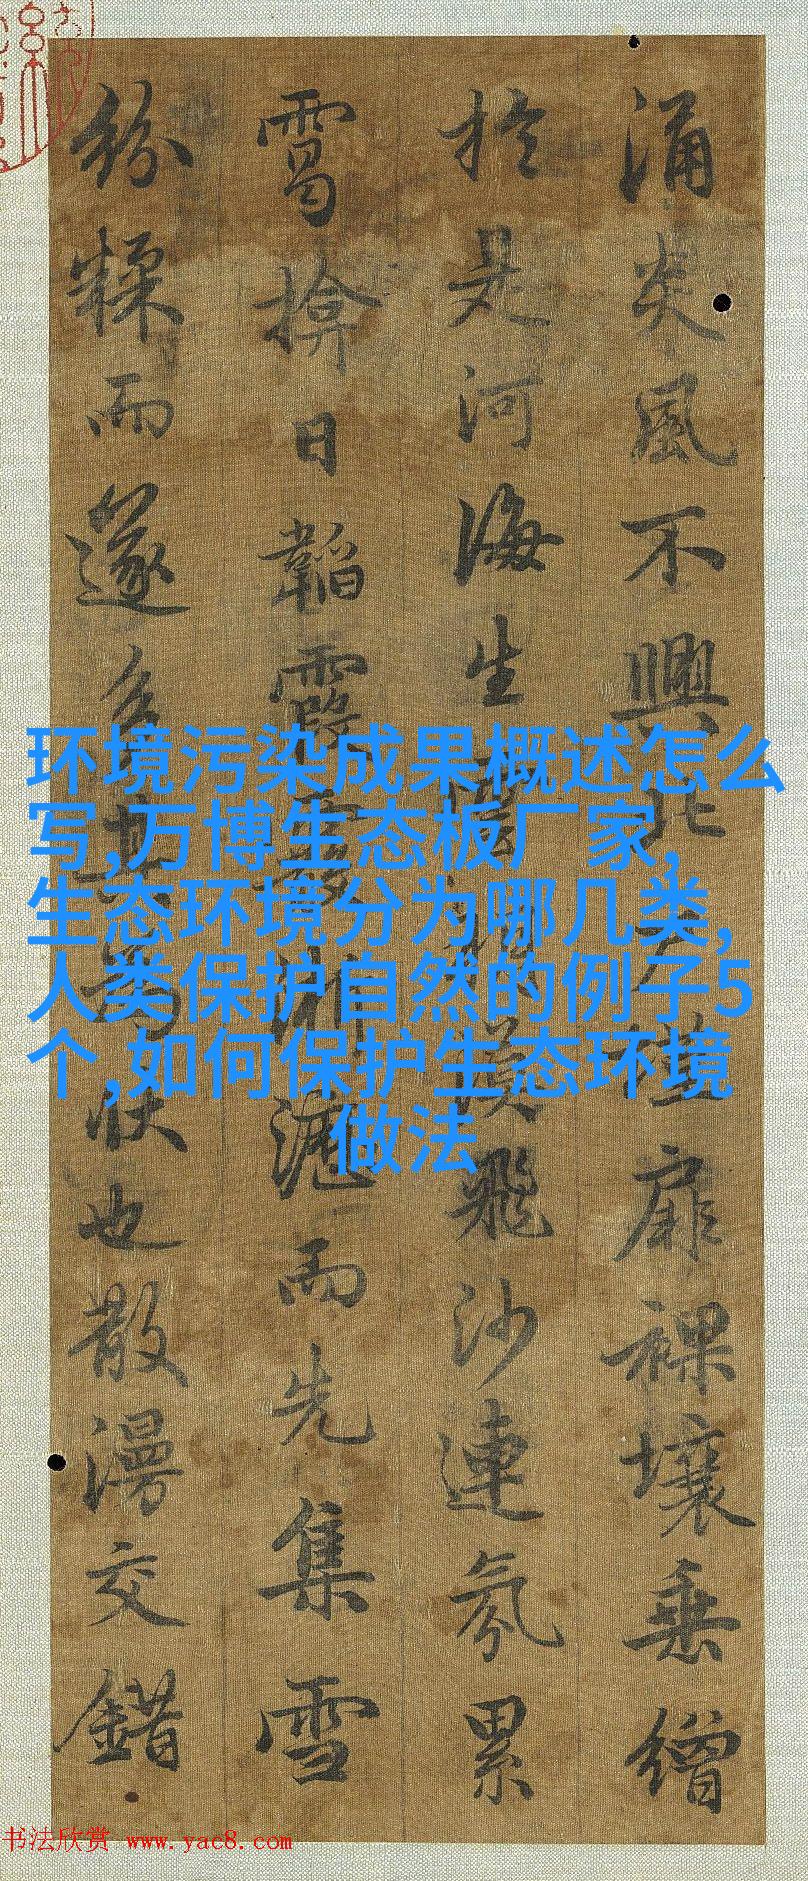 涌炎風不興北墐扉裸壤垂繒
於是河海生漠飛沙連氛累
靄揜日韜霞霰淅瀝而先集雪
紛糅而遂多其為狀也散漫交錯
环境污染成果概述怎么
写,万博生态板厂家,
生态环境分为哪几类,
人类保护自然的例子5
个,如何保护生态环境
做法
书法欣赏 www.yac8.com